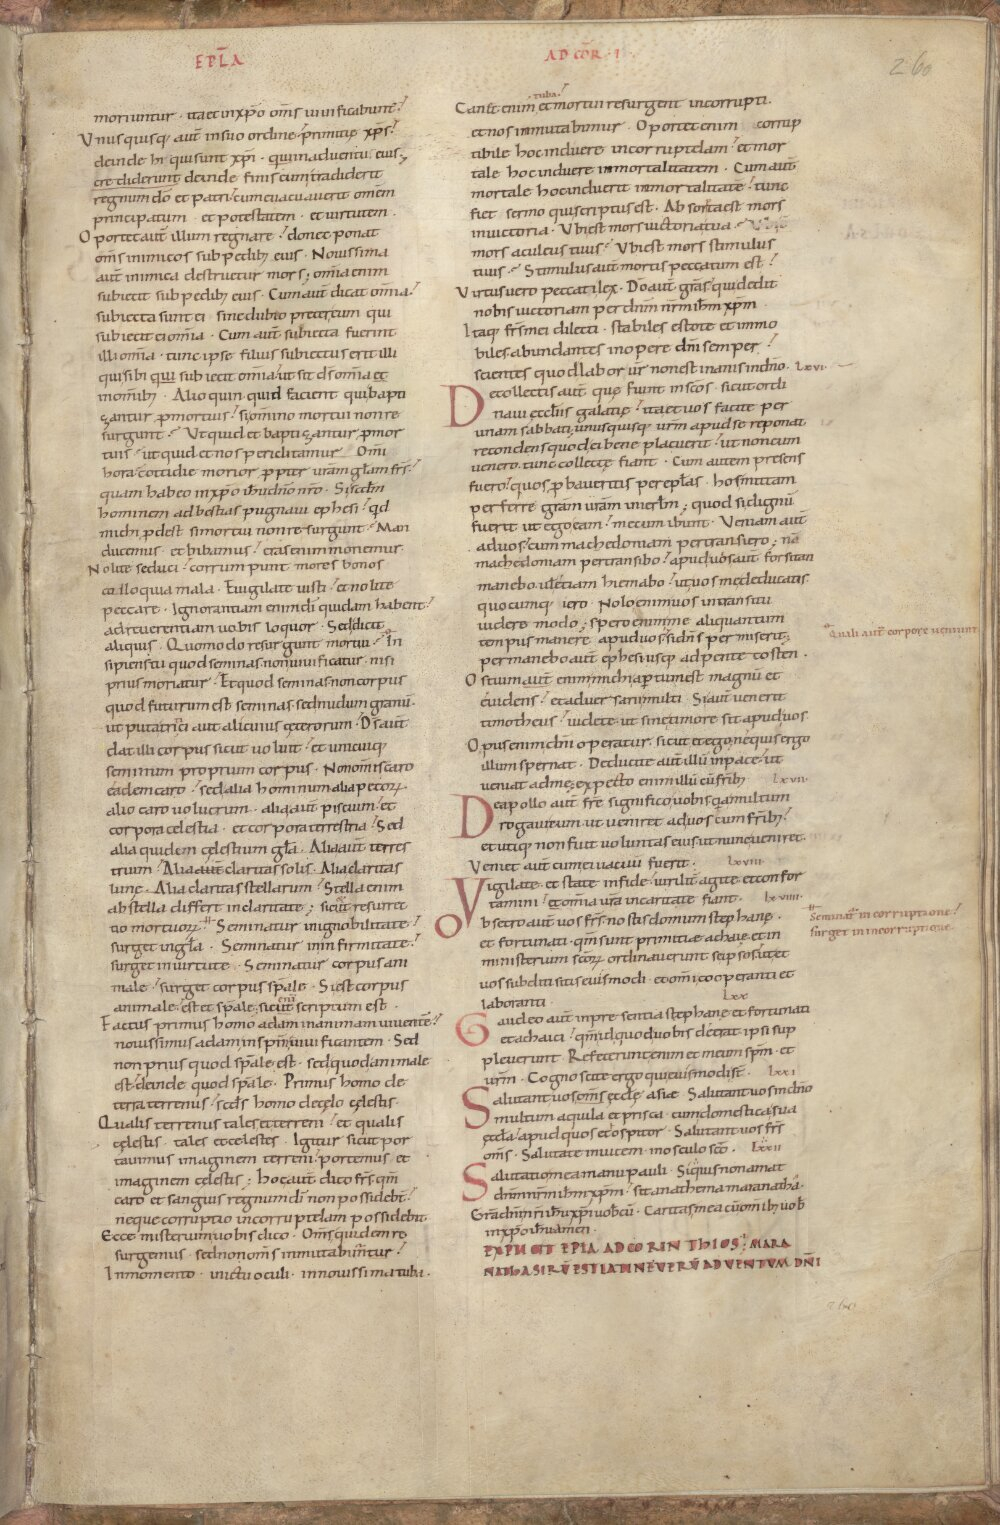 EPLA
AD COR · I ·
260
moriuntur · ita et in xpo oms uiuificabunt?
Unusquisq; aut in suo ordine · primitię xps?
deinde hi qui sunt xpi · qui in aduentu eius;
crediderunt deinde finis cum tradiderit
regnum do et patri? cum euacuauerit omem
principatum · et potestatem · et uirtutem ·
Oportet aut illum regnare? donec ponat
oms inimicos sub pedib; eius · Nouissima
aut inimica destruetur mors; omia enim
subiecit sub pedib; eius · Cum aut dicat omia?
subiecta sunt ei · sine dubio preter eum qui
subiecit ei omia · Cum aut subiecta fuerint
illi omia · tunc ipse filius subiectus erit illi
qui sibi qui subiecit omia? ut sit ds omia et
in omib; · Alioquin quid facient qui bapti
zantur p mortuis? si omino mortui non re
surgunt? Ut quid et baptizantur p mor
tuis? ut quid et nos periclitamur · Omi
hora cottidie morior ppter uram glam frs?
quam habeo in xpo ihu dno nro · Si scdm
hominem ad bestias pugnaui ephesi? qd
michi pdest si mortui non resurgunt? Man
ducemus · et bibamus? cras enim moriemur ·
Nolite seduci? corrumpunt mores bonos
colloquia mala · Euigilate iusti? et nolite
peccare · Ignorantiam enim di quidam habent?
ad reuerentiam uobis loquor · Sed dicit
aliquis · Quomodo resurgunt mortui? In
sipiens tu quod seminas non uiuificatur · nisi
prius moriatur? Et quod seminas non corpus
quod futurum est seminas · sed nudum granu ·
ut puta tritici aut alicuius ceterorum? Ds aut
dat illi corpus sicut uoluit? et unicuiq;
seminum proprium corpus · Non omis caro
eadem caro? sed alia hominum alia pecorꝝ
alio caro uolucrum · alia aut piscium? et
corpora celestia · et corpora terrestria? Sed
alia quidem cęlestium gla · Alia aut terres
trium? Alia aut claritas solis · Alia claritas
lunę · Alia claritas stellarum? Stella enim
ab stella differt in claritate; sicut resurrec
tio mortuoꝝ · Seminatur in ignobilitate?
surget in gla · Seminatur in infirmitate?
surget in uirtute · Seminatur corpus ani
male? surget corpus spale · Si est corpus
animale? est et spale; sicut scriptum est ·
Factus primus homo adam in animam uiuente?
nouissimus adam in spm uiuificantem · Sed
non prius quod spale est · sed quod animale
est? deinde quod spale · Primus homo de
terra terrenus? scds homo de cęlo cęlestis ·
Qualis terrenus tales et terreni? et qualis
cęlestis · tales et cęlestes · Igitur sicut por
tauimus imaginem terreni? portemus et
imaginem cęlestis; hoc aut dico frs qm
caro et sanguis regnum di non possidebt?
neque corruptio incorruptelam possidebit ·
Ecce misterium uobis dico · Oms quidem re
surgemus · sed non oms inmutabimur?
In momento · in ictu oculi · in nouissima tuba ·
tuba?
Canet enim et mortui resurgent incorrupti ·
et nos inmutabimur · Oportet enim corrup
tibile hoc induere incorruptelam? et mor
tale hoc induere inmortalitatem · Cum aut
mortale hoc induerit inmortalitate? tunc
fiet sermo qui scriptus est · Absorta est mors
in uictoria · Ubi est mors uictoria tua?
mors aculeus tuus? Ubi est mors stimulus
tuus? Stimulus aut mortis peccatum est?
Virtus uero peccati lex · Do aut gras? qui dedit
nobis uictoriam per dnm nrm ihm xpm ·
Itaq; frs mei dilecti · stabiles estote et immo
biles abundantes in opere dni semper?
scientes quod labor ur non est inanis in dno · lxvi ·
De collectis aut quę fiunt in scos · sicut ordi
naui ecclis galatię? ita et uos facite per
unam sabbati; unusquisq; urm apud se reponat
recondens quod ei bene placuerit? ut non cum
uenero tunc collectę fiant · Cum autem presens
fuero? quos pbaueritis per eplas · hos mittam
perferre gram uram in ierlm; quod si dignu
fuerit ut ego eam? mecum ibunt · Veniam aut
ad uos? cum machedoniam pertransiero; na
machedoniam pertransibo? apud uos aut forsitan
manebo uel etiam hiemabo? ut uos me deducatis
quocumq; iero · Nolo enim uos in transitu
uidere modo; spero enim me aliquantum
tempus manere apud uos si dns permiserit;
permanebo aut ephesi usq; ad pentecosten ·
Ostium aut enim michi aptum est magnu et
euidens? et aduersarii multi · Si aut uenerit
timotheus? uidete ut sine timore sit apud uos
Opus enim dni operatur sicut et ego; ne quis ergo
illum spernat · Deducite aut illu in pace? ut
ueniat ad me; expecto enim illu cu frib; lxvii ·
De apollo aut fre significo uobis qa multum
rogaui eum ut ueniret ad uos cum frib;?
et utiq; non fuit uoluntas eius ut nunc ueniret ·
Veniet aut cum ei uacuu fuerit · lxviii ·
Vigilate et state in fide? uirilit agite et confor
tamini? et omia ura in caritate fiant · lxviiii ·
Obsecro aut uos frs · nostis domum stephanę ·
et fortunati · qm sunt primitiæ achaię et in
ministerium scoꝝ ordinauerunt seipsos ut et
uos subditi sitis eiusmodi · et omi cooperanti et
laboranti · lxx
Gaudeo aut in presentia stephanę et fortunati
et achaici? qm id quod uobis deerat ipsi sup
pleuerunt · Refecerunt enim et meum spm · et
urm · Cognoscite ergo qui eiusmodi st · lxxi
Salutant uos oms eccle asiæ · Salutant uos in dno
multum aquila et prisca · cum domestica sua
eccla? apud quos et ospitor · Salutant uos frs
oms · Salutate inuicem · in osculo sco · lxxii
Salutatio mea manu pauli · Si quis non amat
dnm nrm ihm xpm? sit anathema maranatha ·
Gra dni nri ihu xpi uobcu · Caritas mea cu omib; uob
in xpo ihu amen ·
EXPLICIT EPLA AD CORINTHIOS; MARA
NATHA SIRU EST LATINE VERU ADVENTUM DNI
Quali aut corpore uenient
Seminatr in corruptione?
surget in incorruptione
260